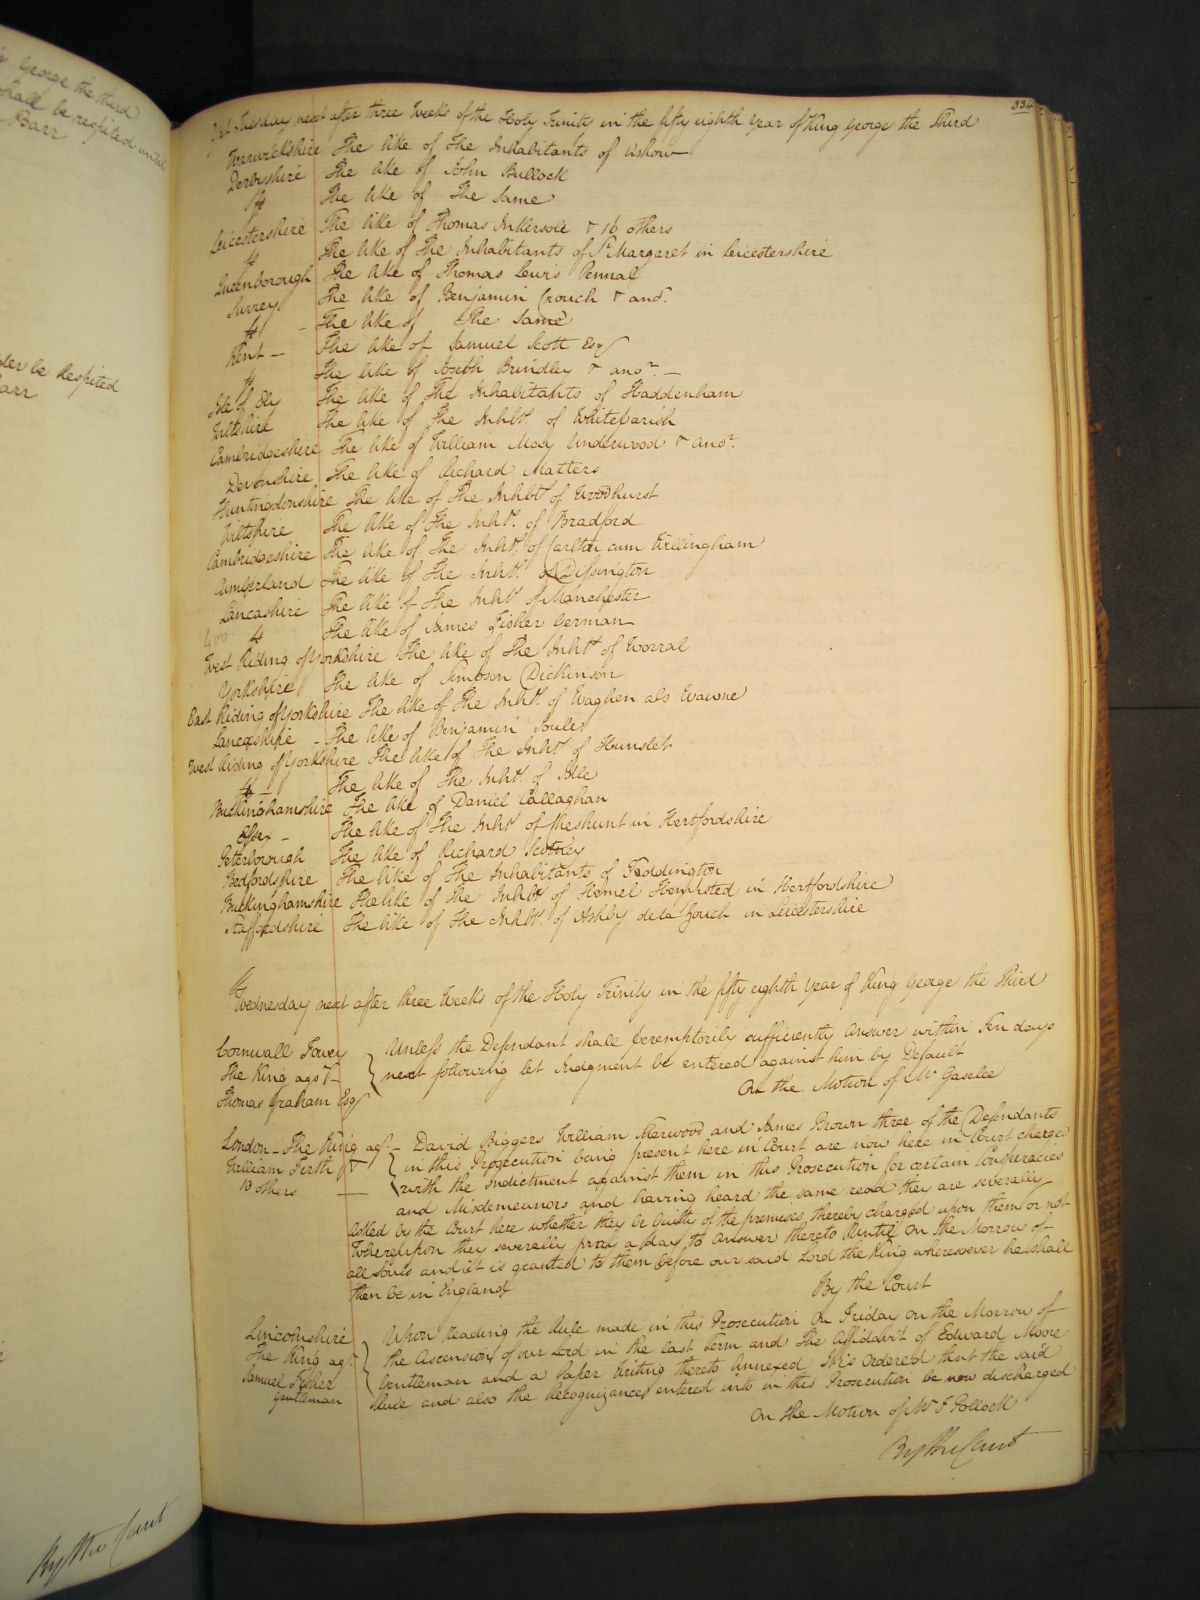 George the third
shall be respited until
Barr
der be Respited
arr
By the Court
334
Yet Tuesday next after three Weeks of the Holy Trinity in the fifty eighth Year of King George the Third
Warwickshire The like of The Inhabitants of Ashow
Derbyshire The like of John Bullock
The like of The Same
Leicestershire The like of Thomas Inkersole & 16 others
The like of The Inhabitants of St Margaret in Leicestershire
Queenborough The like of Thomas Lewis Pennal
Surrey The like of Benjamin Crouch & anor.
The like of The Same
Kent The like of Samuel Scott Esqr
The like of Joseph Brindley & anor.
Isle of Ely The like of The Inhabitants of Haddenham
Wiltshire The like of The Inhbts. of Whiteparish
Cambridgeshire The like of William May Underwood & anor.
Devonshire The like of Richard Matters
Huntingdonshire The like of The Inhbts of Woodhurst
Wiltshire The like of The Inhts. of Bradford
Cambridgeshire The like of The Inhts. of Carlton cum Willingham
Cumberland The like of The Inhbts. of Dissington
Lancashire The like of The Inhbts of Manchester
400 The like of James Fisher German
West Riding of Yorkshire The like of The Inhbts of Worral
Yorkshire The like of Simpson Dickinson
East Riding of Yorkshire The like of The Inhbts. of Waghen als Wawne
Lancashire The like of Benjamin Soule
West Riding of Yorkshire The like of The Inhbts of Hunslet
The like of The Inhbts. of Idle
Buckinghamshire The like of Daniel Callaghan
Essex The like of The Inhbts of Cheshunt in Hertfordshire
Peterborough The like of Richard Scotney
Bedfordshire The like of The Inhabitants of Toddington
Buckinghamshire The like of The Inhbts of Hemel Hempsted in Hertfordshire
Staffordshire The like of The Inhbts. of Ashby de la Zouch in Leicestershire
Wednesday next after three Weeks of the Holy Trinity in the fifty eighth Year of King George the Third
Cornwall Fowey Unless the Defendant shall peremptorily sufficiently Answer within Ten days
The King agst next following let Judgment be entered against him by Default
Thomas Graham Esqr On the Motion of Mr Gaselee
London The King agst. David Biggers William Sherwood and James Brown three of the Defendants
William Firth & in this Prosecution being present here in Court are now here in Court charged
10 others with the Indictment against them in this Prosecution for certain Conspiracies
and Misdemeanors and having heard the same read they are severally
asked by the Court here whether they be Guilty of the premises thereby charged upon them or not
Whereupon they severally pray a day to Answer thereto Until On the Morrow of
all Souls and it is granted to them before our said Lord the King wheresoever he shall
then be in England
By the Court
Lincolnshire Upon reading the Rule made in this Prosecution On Friday On the Morrow of
The King agst. the Ascension of our Lord in the last Term and The Affidavit of Edward Moore
Samuel Fisher Gentleman and a Paper Writing thereto Annexed It is Ordered that the said
gentleman Rule and also the Recognizances entered into in this Prosecution be now discharged
On the Motion of Mr F Pollock
By the Court